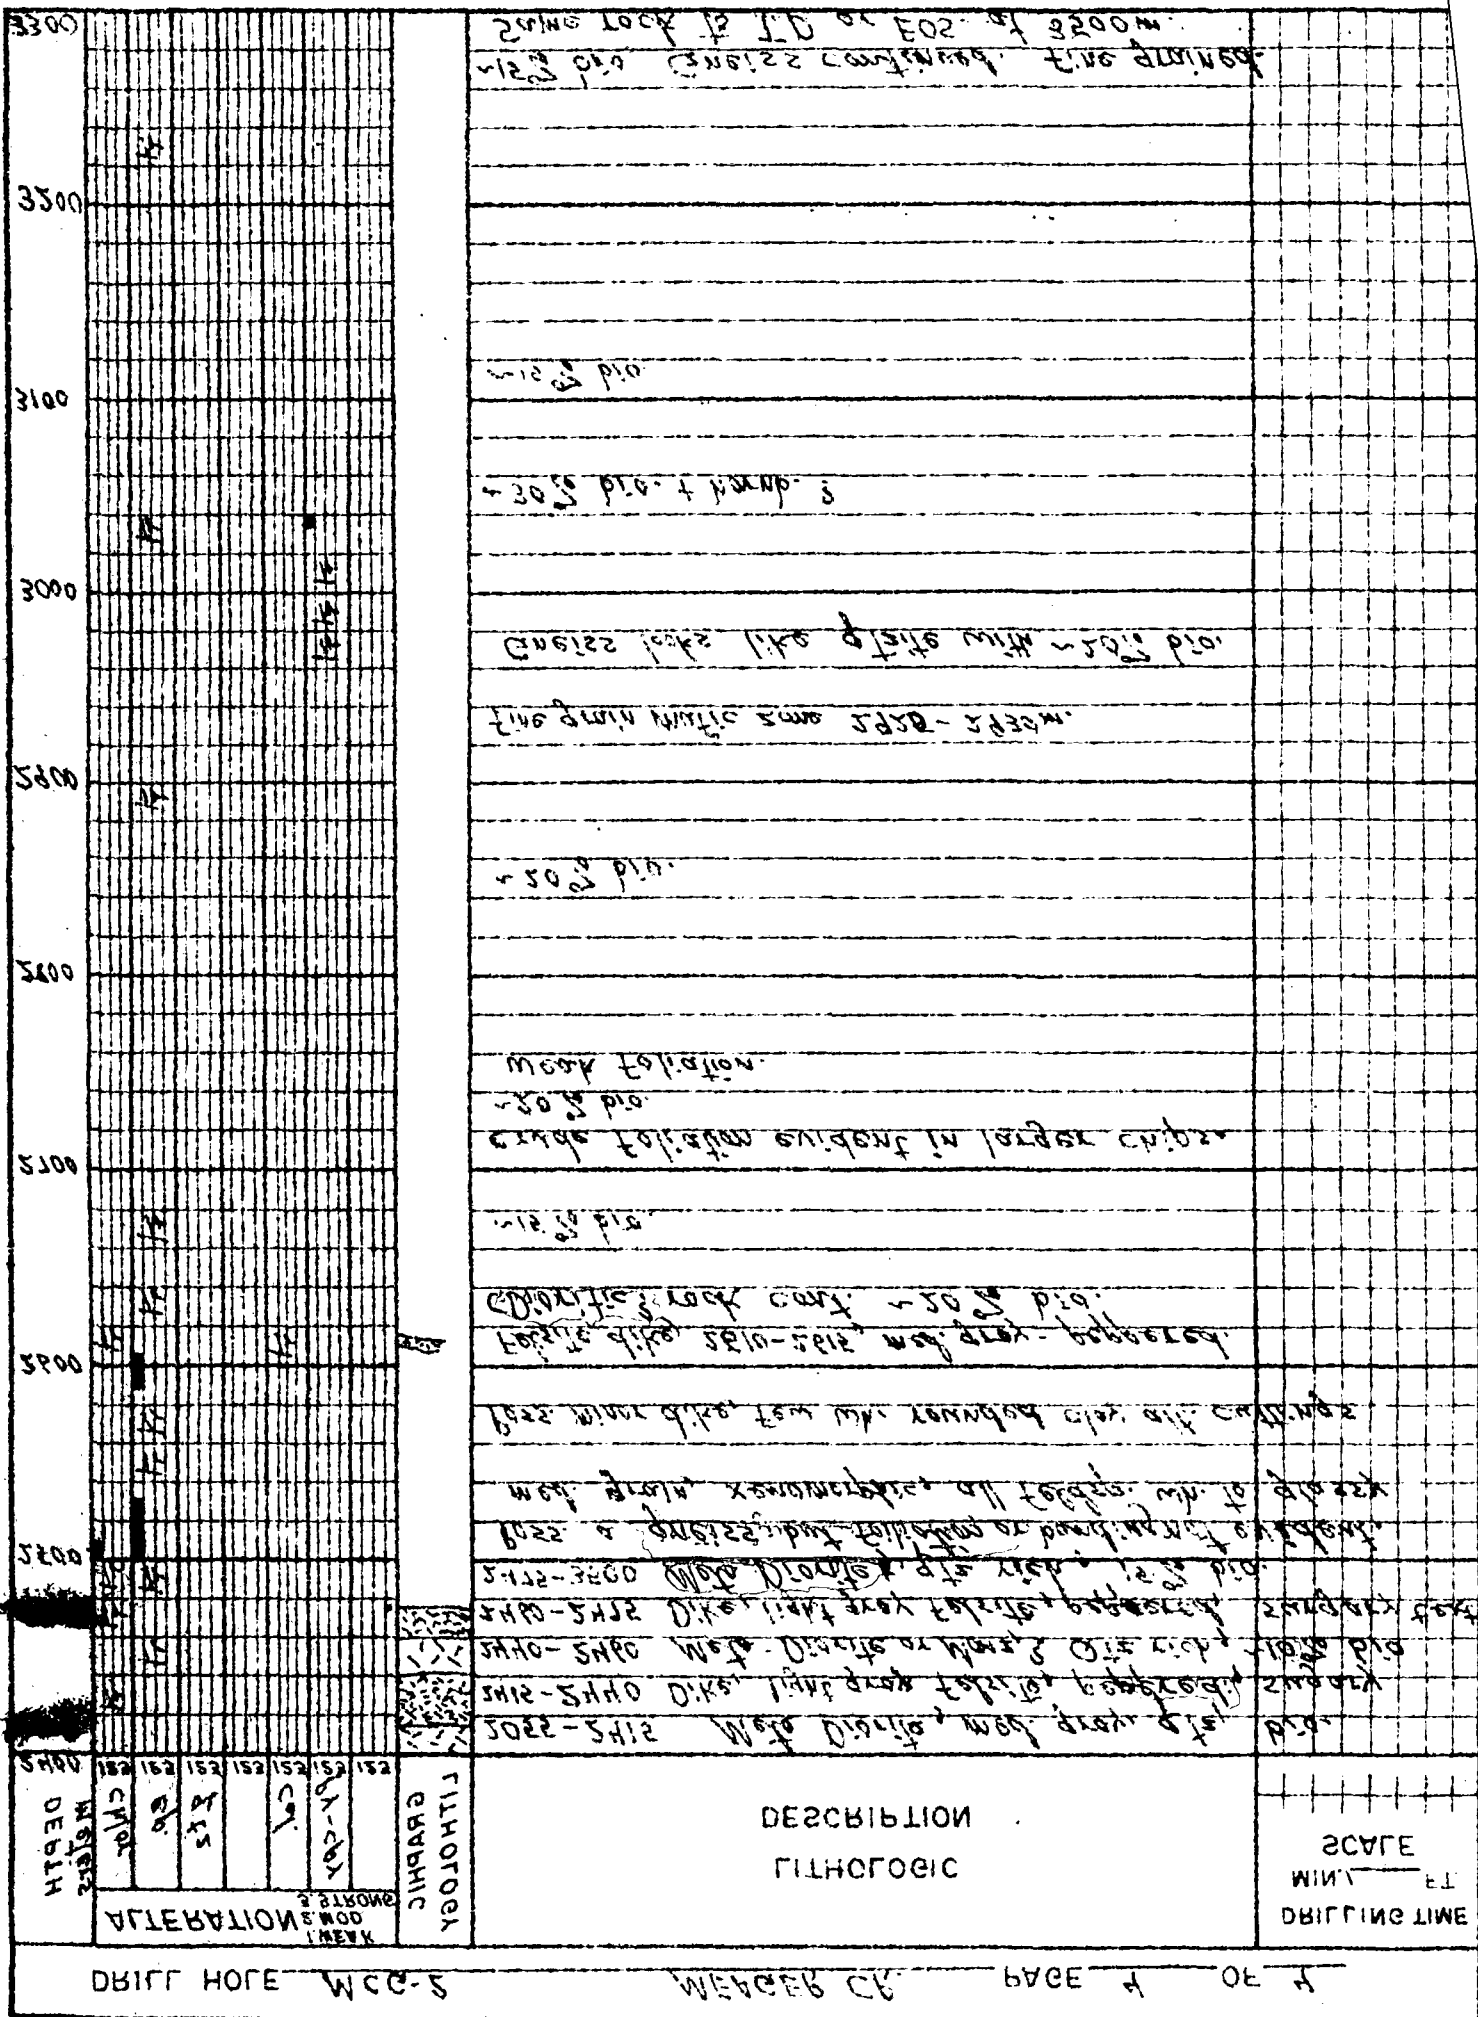 DRILL HOLE MCG-2 MEAGER CR. PAGE 4 OF 4
DEPTH
Meters
ALTERATION
1. WEAK
2. MOD
3. STRONG
GRAPHIC
LITHOLOGY
LITHOLOGIC
DESCRIPTION
DRILLING TIME
MIN./ FT.
SCALE
chlor
ep
qtz
cal
py-cpy
123 123 123 123 123 123 123
2400
2055-2415 Meta Diorite, med. gray, qtz, bio.
2415-2440 Dike, light gray felsite, peppered, sugary
2440-2460 Meta-Diorite or Monz.? Qtz rich, ~10% bio
2460-2475 Dike, light gray felsite, peppered, sugary text
2475-3500 Meta Diorite, qtz rich, 15% bio.
2500
Poss. a gneiss, but foliation or banding not evident,
med. grain, xenomorphic, all feldsp. wh. to glassy
Poss. minor dike, few wh. rounded clay alt. cuttings
2600
Felsite dike, 2610-2615, med. gray-peppered.
Dioritic rock cont. ~20% bio.
~15% bio.
2700
crude foliation evident in larger chips.
~20% bio.
weak foliation.
2800
~20% bio.
2900
fine grain mafic zone 2920-2935m.
Gneiss looks like qtzite with ~20% bio.
3000
~30% bio. + hornb. ?
3100
~15% bio.
3200
~15% bio. Gneiss continued. Fine grained.
Same rock to T.D. or EOS. at 3500m.
3300